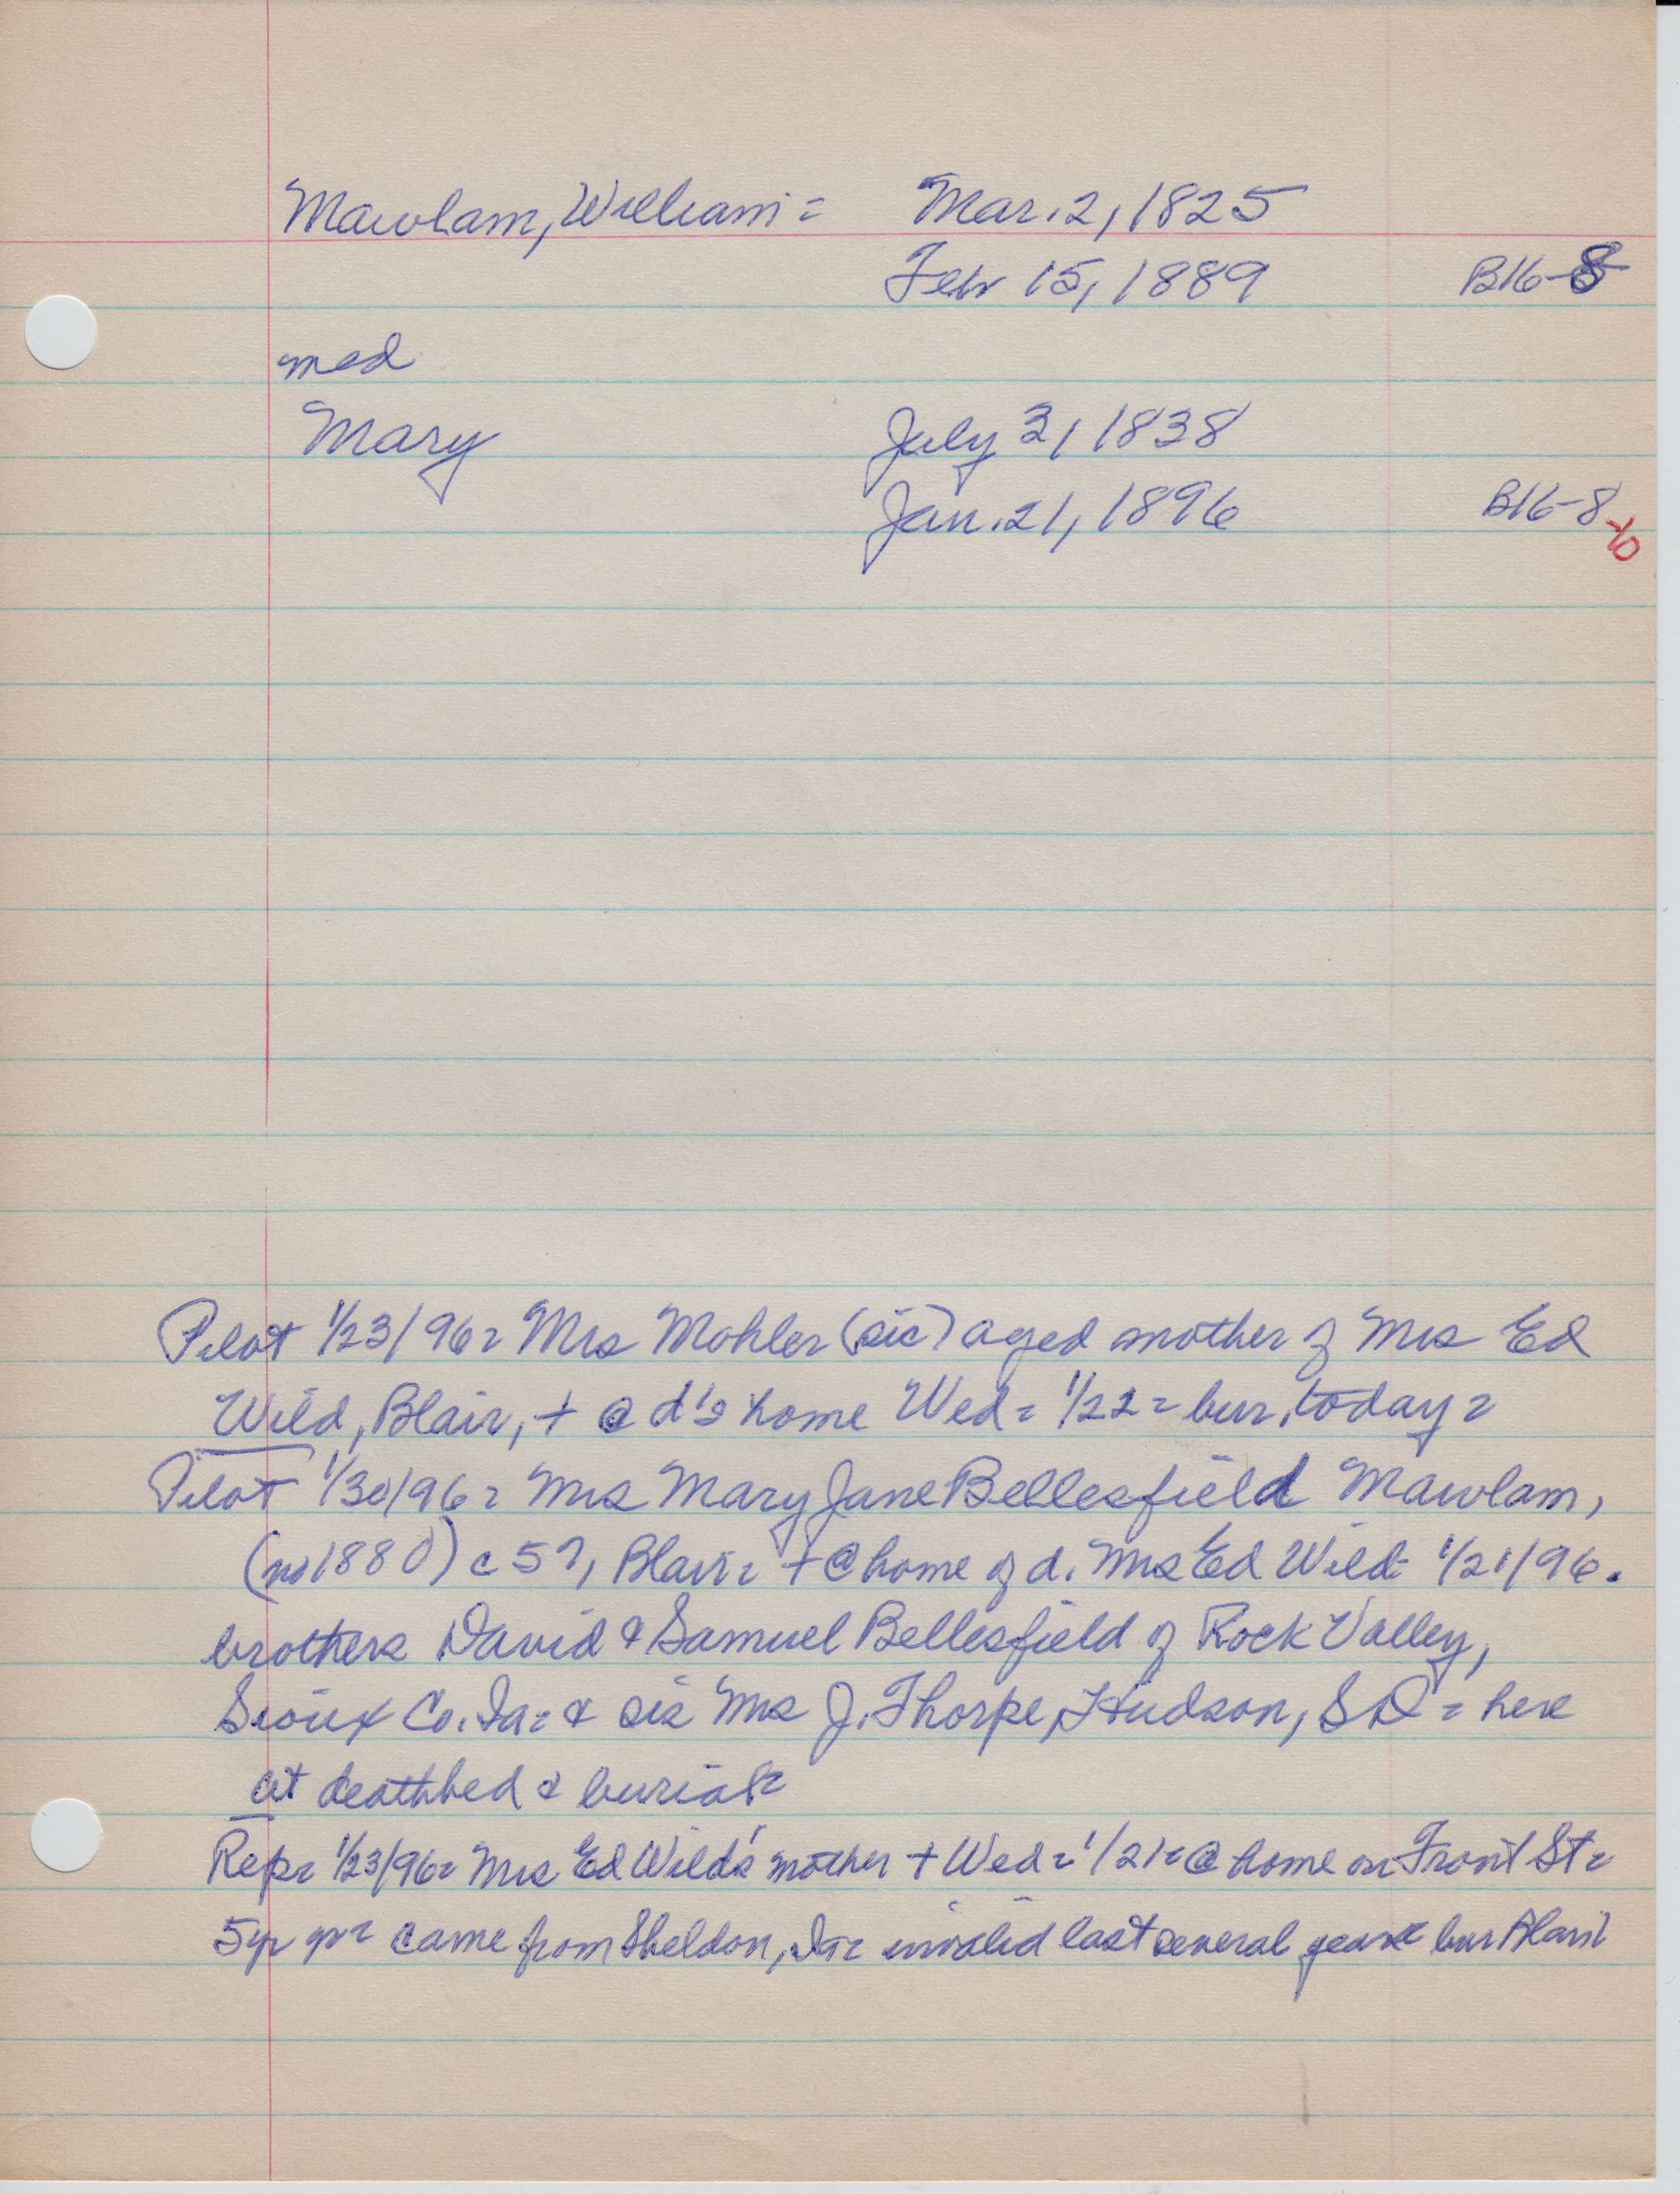 Mawlam, William = Mar. 2, 1825
Feb 15, 1889 B16-8
med
Mary July 3, 1838
Jan. 21, 1896 B16-8
-10
Pilot 1/23/96 = Mrs Mohler (sic) aged mother of Mrs Ed
Wild, Blair, + @ d's home Wed = 1/22 = bur. today =
Pilot 1/30/96 = Mrs Mary Jane Bellesfield Mawlam,
(no 1880) c 57, Blair = + @ home of d. Mrs Ed Wild 1/21/96.
brothers David & Samuel Bellesfield of Rock Valley,
Sioux Co. Ia = & sis Mrs J. Thorpe, Hudson, SD = here
at deathbed & burial =
Rep = 1/23/96 = Mrs Ed Wild's mother + Wed = 1/21 = @ home on Front St =
5 yr came from Sheldon, Ia = invalid last several years bur Blair